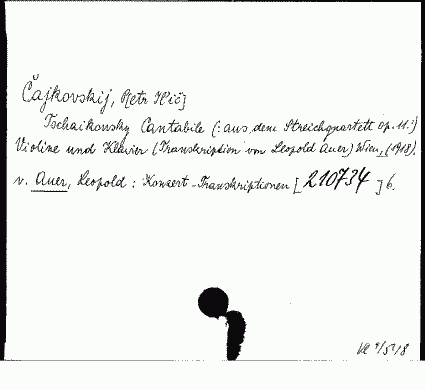 Čajkovskij, P[etr Il'ič]
Tschaikowsky Cantabile (: aus dem Streichquartett op. 11.:)
Violine und Klavier (Transkription von Leopold Auer) Wien, (1918).
v. Auer, Leopold : Konzert-Transkriptionen [210734] 6.